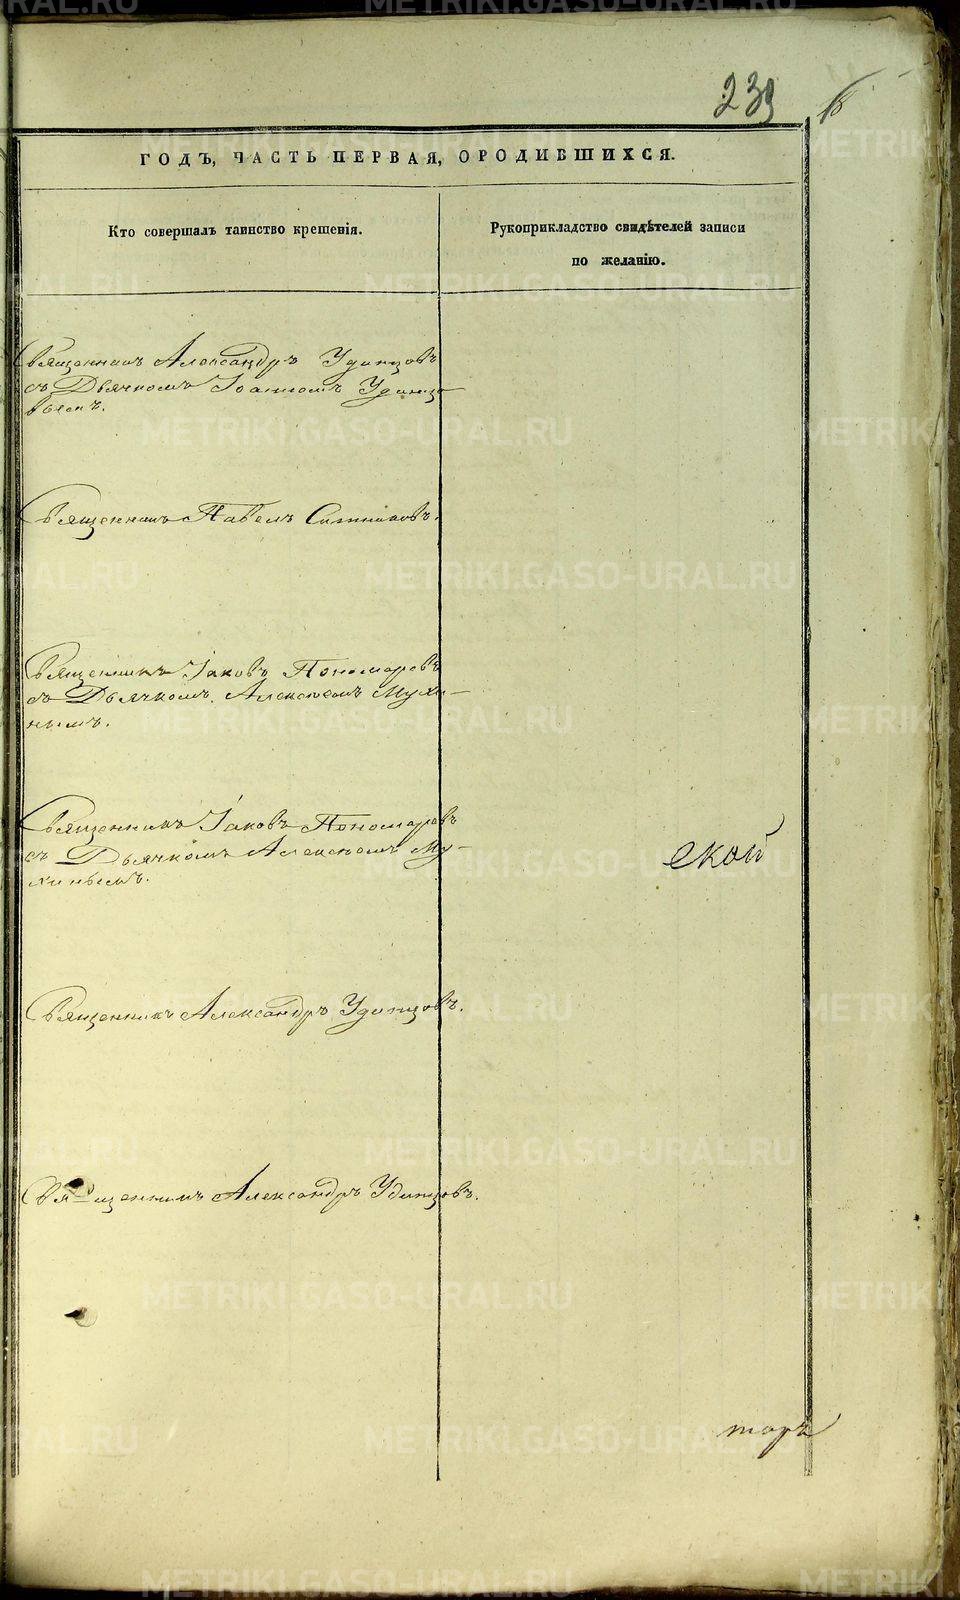 239
18
ГОДЪ, ЧАСТЬ ПЕРВАЯ, О РОДИВШИХСЯ.
Кто совершалъ таинство крещенія.
Рукоприкладство свидѣтелей записи
по желанію.
Священникъ Александръ Удинцовъ
съ Дьячкомъ Іоанномъ Удинцо
вымъ.
Священникъ Павелъ Ситниковъ.
Священникъ Іаковъ Пономаревъ
съ Дьячкомъ Алексѣемъ Мухи-
нымъ.
Священникъ Іаковъ Пономаревъ
съ Дьячкомъ Алексѣемъ Му-
хинымъ.
ской
Священникъ Александръ Удинцовъ.
Священникъ Александръ Удинцовъ.
торъ
METRIKI.GASO-URAL.RU